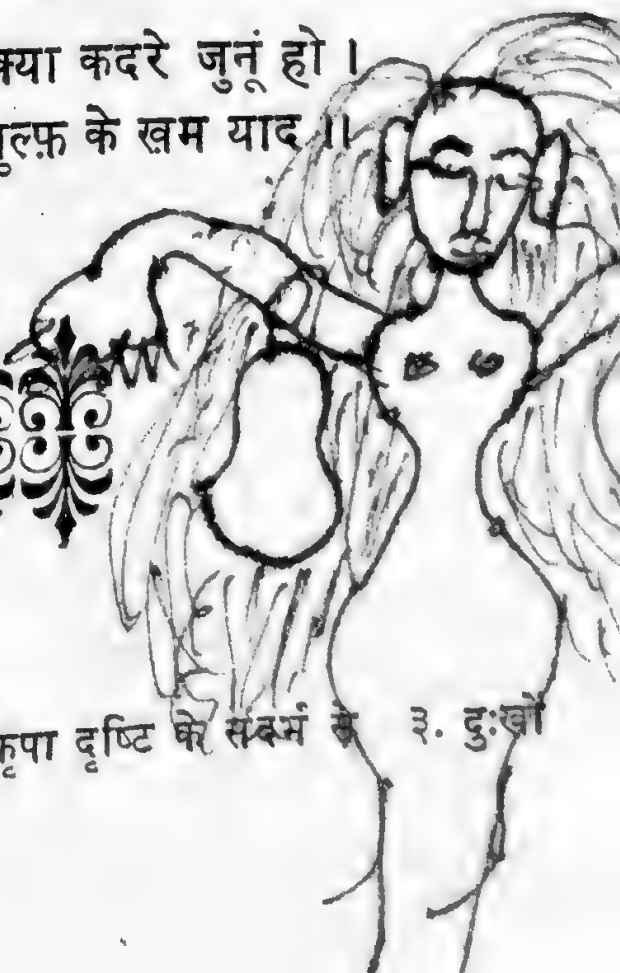 क्या कदरे जुनूं हो ।
ज़ुल्फ़ के ख़म याद ॥
कृपा दृष्टि के संदर्भ में ३. दुःखों